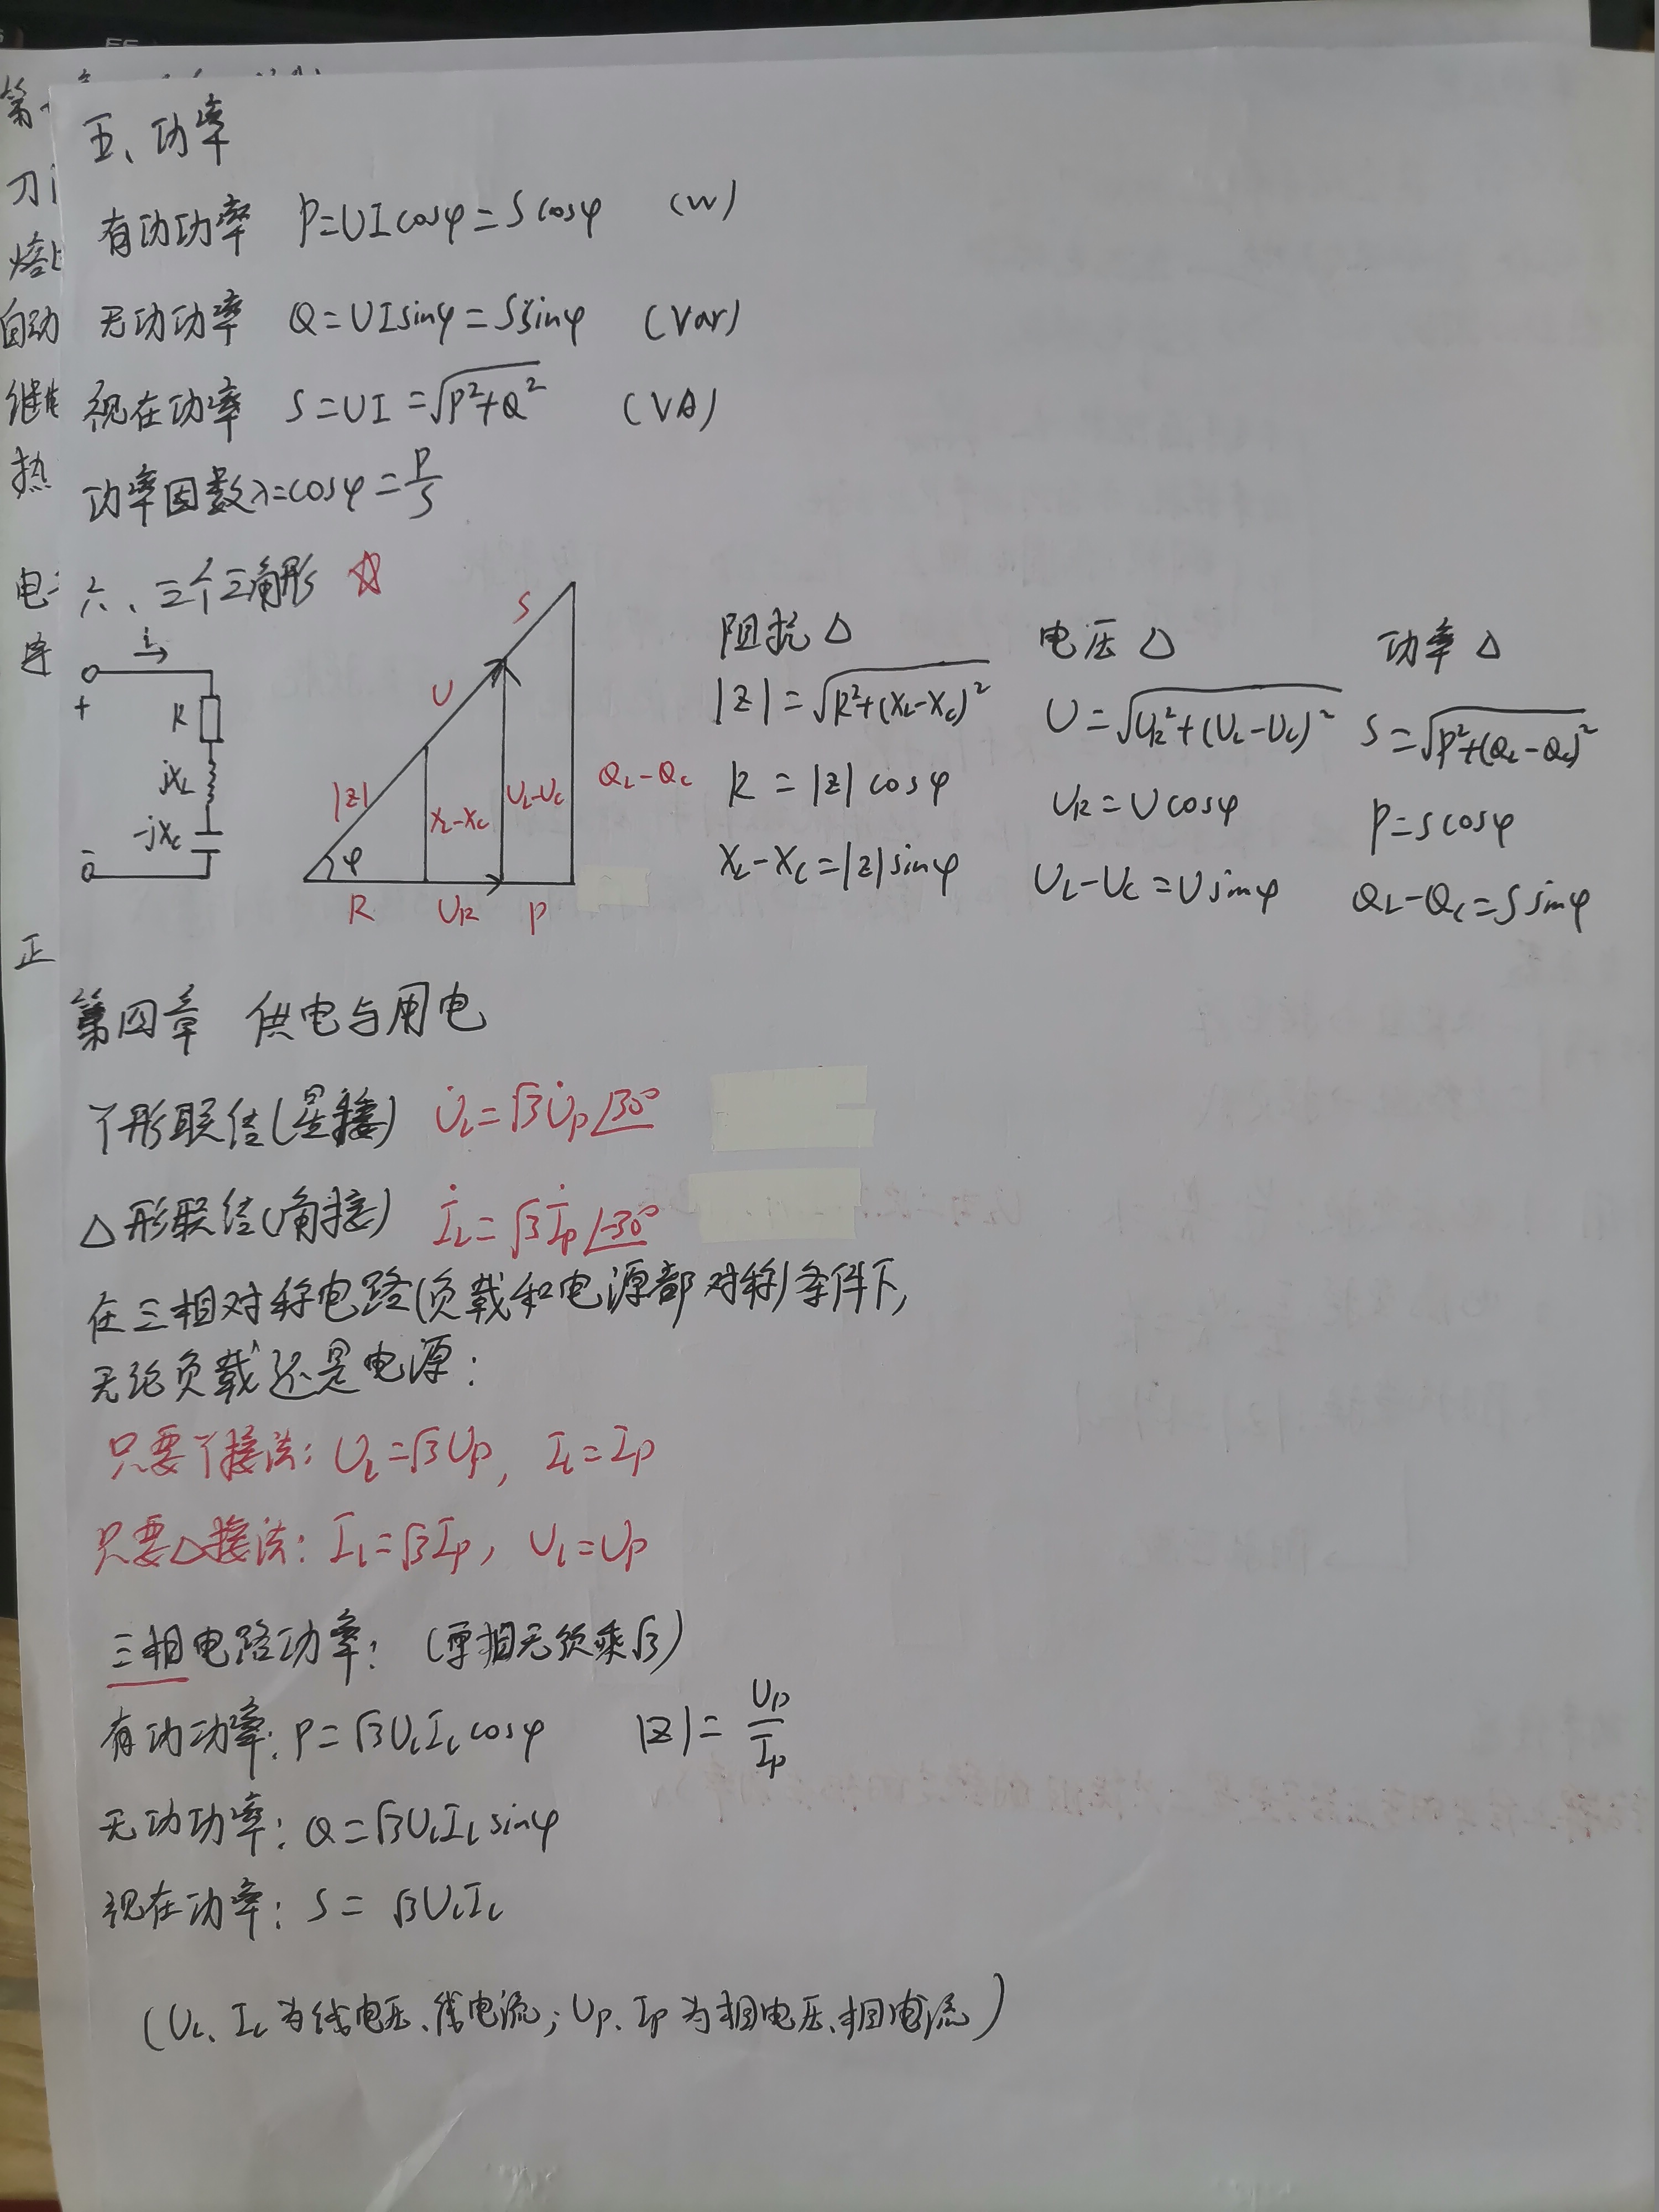 五、功率
有功功率 P=UIcosφ=Scosφ (W)
无功功率 Q=UIsinφ=Ssinφ (Var)
视在功率 S=UI=√(P²+Q²) (VA)
功率因数λ=cosφ=P/S
六、三个三角形 ☆
i
+
R
jXL
-jXc
-
S
U
|Z|
φ
XL-Xc
UL-Uc
QL-Qc
R
UR
P
阻抗△
|Z|=√(R²+(XL-Xc)²)
R=|Z|cosφ
XL-Xc=|Z|sinφ
电压△
U=√(UR²+(UL-Uc)²)
UR=Ucosφ
UL-Uc=Usinφ
功率△
S=√(P²+(QL-Qc)²)
P=Scosφ
QL-Qc=Ssinφ
第四章 供电与用电
Y形联结(星接) U̇L=√3U̇p∠30°
△形联结(角接) İL=√3İp∠-30°
在三相对称电路(负载和电源都对称)条件下,
无论负载还是电源:
只要Y接法: UL=√3Up, IL=Ip
只要△接法: IL=√3Ip, UL=Up
三相电路功率: (单相无须乘√3)
有功功率: P=√3ULILcosφ |Z|=Up/Ip
无功功率: Q=√3ULILsinφ
视在功率: S=√3ULIL
(UL、IL为线电压、线电流; Up、Ip为相电压、相电流)
第
自动
继电
热
电
正